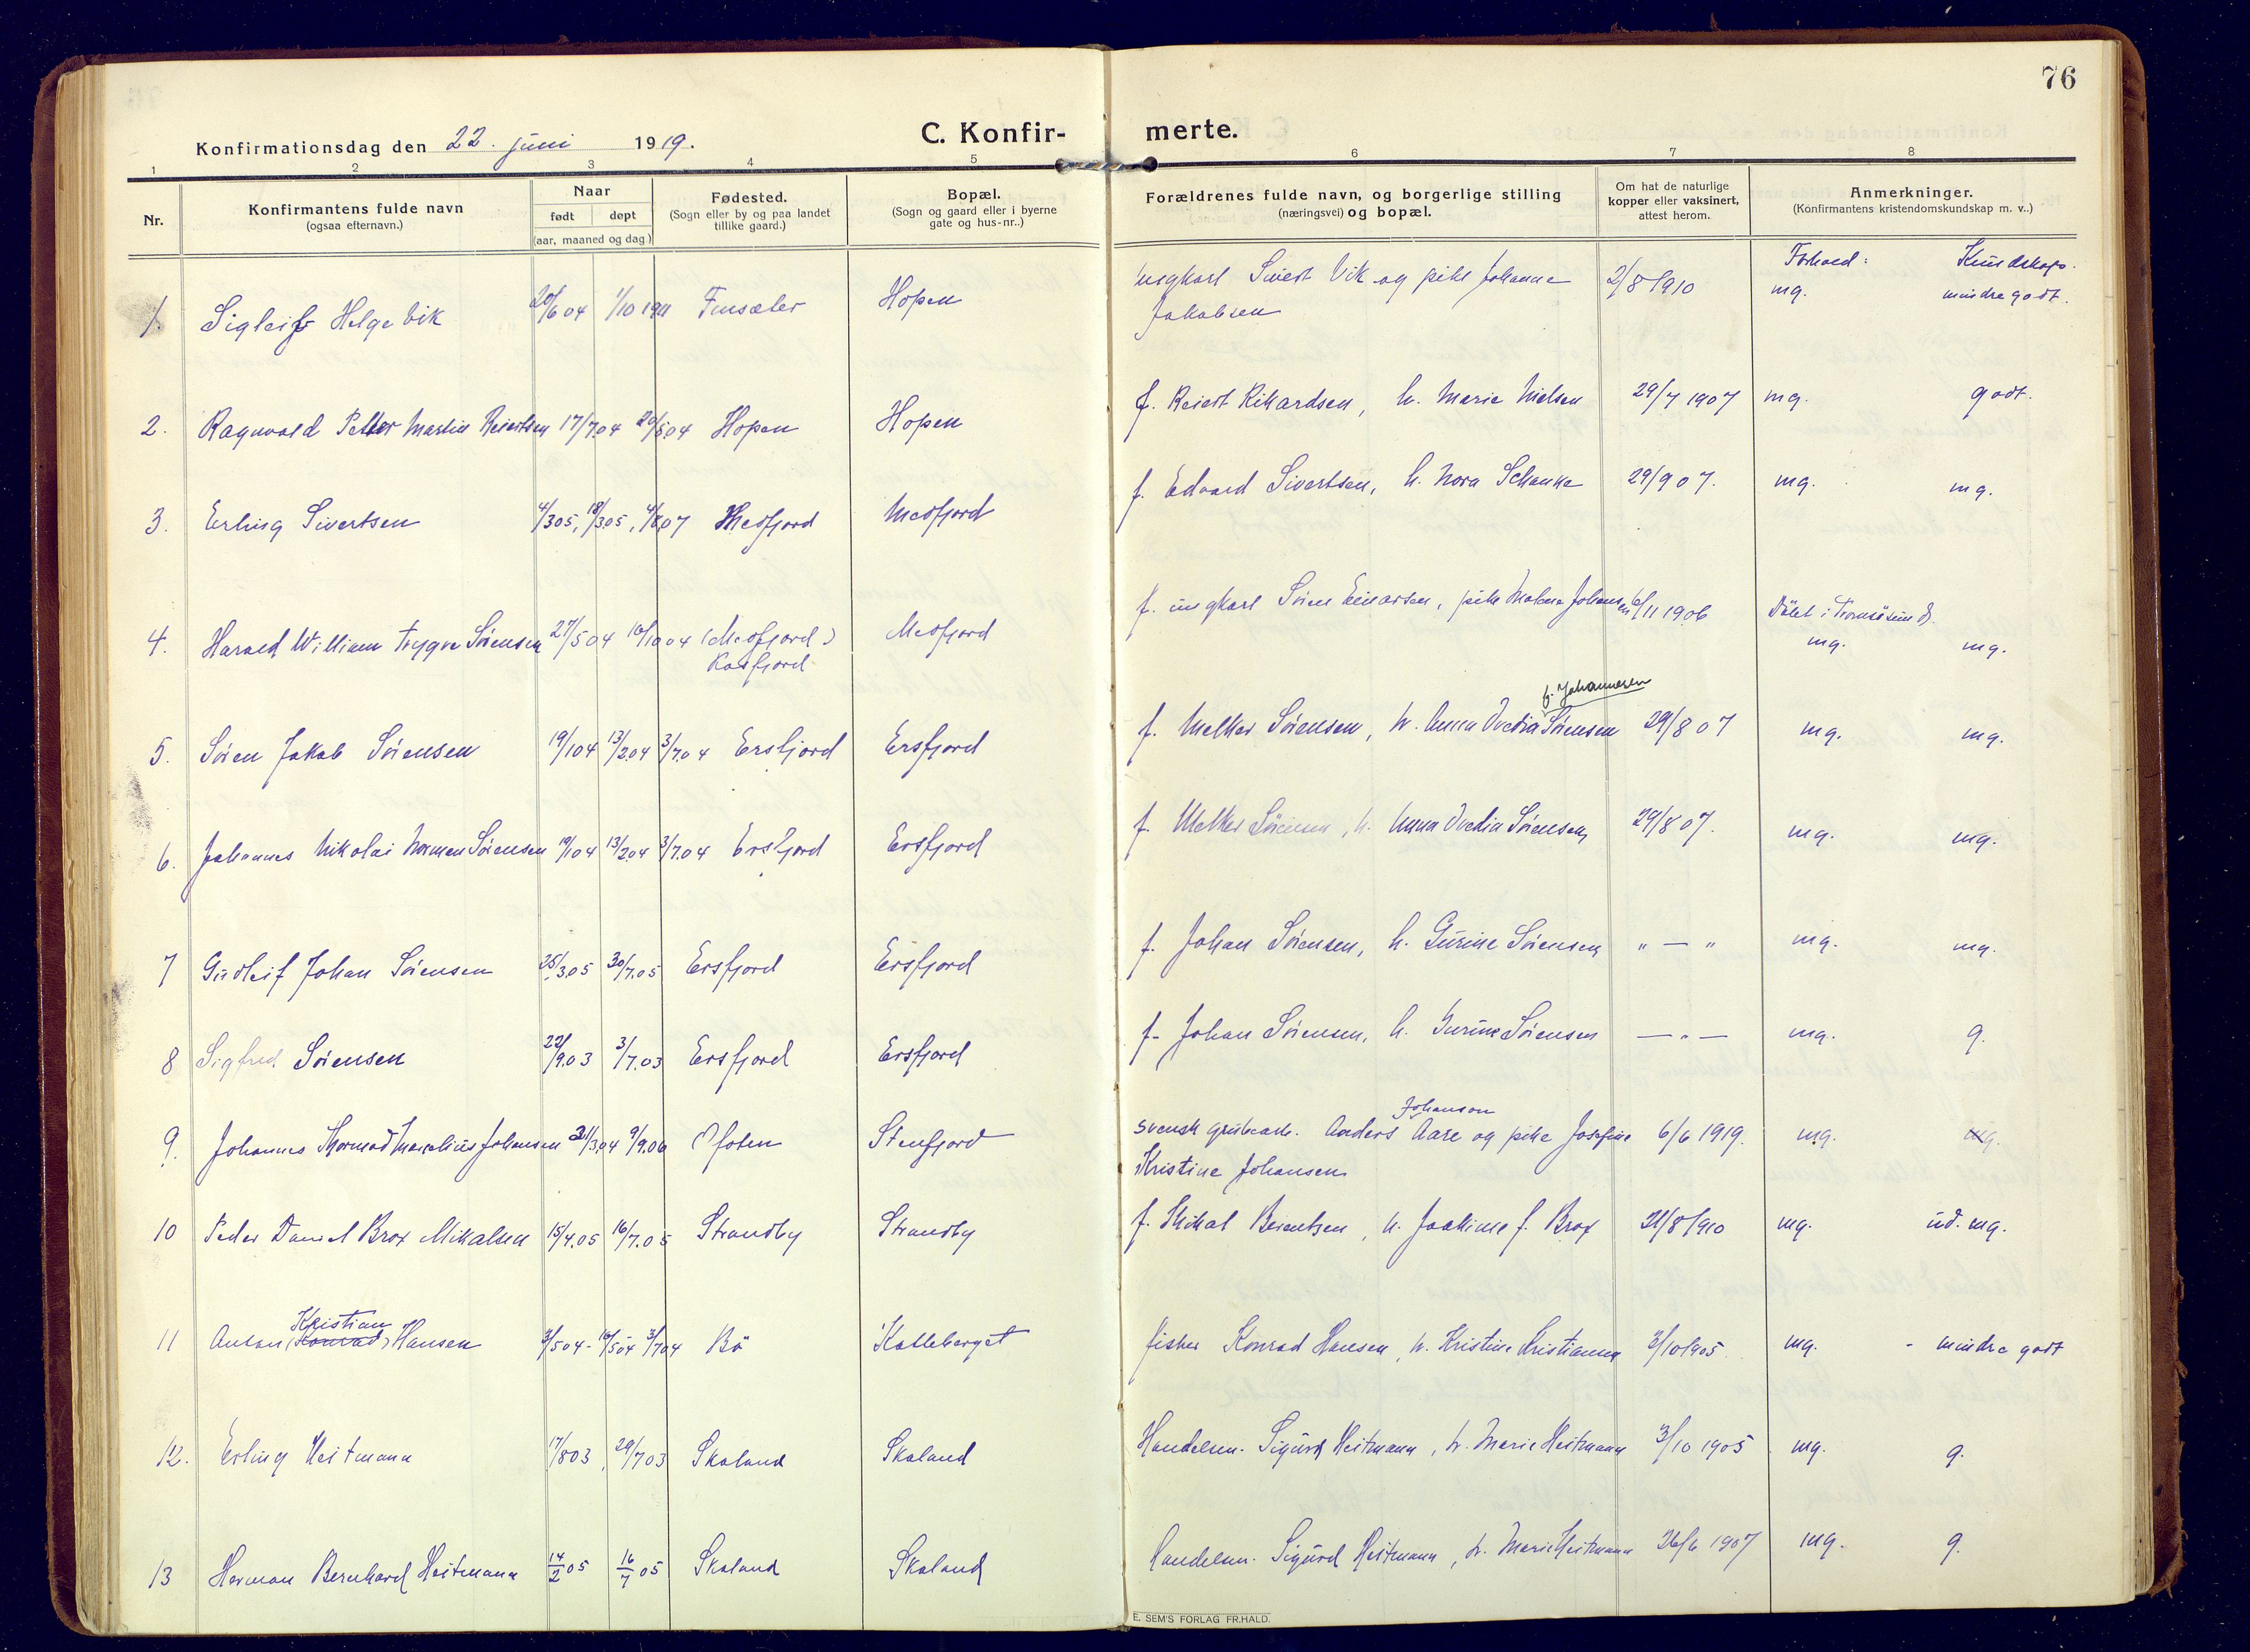 76
Konfirmationsdag den 22. juni 1919.
C. Konfirmerte.
1 2 3 4 5 6 7 8
Nr.
Konfirmantens fulde navn
(ogsaa efternavn.)
Naar
født døpt
(aar, maaned og dag.)
Fødested.
(Sogn eller by og paa landet
tillike gaard.)
Bopæl.
(Sogn og gaard eller i byerne
gate og hus-nr..)
Forældrenes fulde navn, og borgerlige stilling
(næringsvei) og bopæl.
Om hat de naturlige
kopper eller vaksinert,
attest herom.
Anmerkninger.
(Konfirmantens kristendomskundskap m. v..)
Forhold: Kundskap.
1. Sigleif Helge Vik 20/6 04 1/10 1911 Finsæter Hopen ungkarl Sivert Vik og pike Johanne 2/8 1910 mg. mindre godt.
Jakobsen
2. Ragnvald Petter Martin Reiertsen 17/7.04 20/8.04 Hopen Hopen f. Reiert Rikardsen, h. Marie Nielsen 29/7 1907 mg. godt.
3. Erling Sivertsen 4/3 05, 18/3.05, 4/8.07 Mefjord Mefjord f. Edvard Sivertsen, h. Nora Schanke 29/9 07. mg. mg.
4. Harald William Trygve Sørensen 27/5 04 16/10 04 (Mefjord) Mefjord f. ungkarl Sören Einarsen, pike Malene Johansen 6/11 1906 Döbt i Tromsösund.
Kasfjord mg. mg.
f. Johannesen
5. Sören Jakob Sörensen 19/1 04 13/2.04 3/7.04 Ersfjord Ersfjord f. Melker Sörensen, h. Anna Ovedia Sörensen 29/8 07 mg. mg.
6. Johannes Nikolai Normen Sörensen 19/1 04 13/2.04 3/7.04 Ersfjord Ersfjord f. Melker Sörensen, h. Anna Ovedia Sörensen 29/8 07. mg. mg.
7 Gudleif Johan Sörensen 25/3.05 30/7.05 Ersfjord Ersfjord f. Johan Sörensen, h. Gurine Sörensen " — " mg. mg.
8 Sigfred Sörensen 22/9.03 3/7.03 Ersfjord Ersfjord f. Johan Sörensen, h. Gurine Sörensen — " — mg. g.
Johanson
9. Johannes Thormod Marselius Johansen 31/3.04 9/9.06 Ofoten Stenfjord svensk grubearb. Anders Aare og pike Josefine 6/6 1919. mg. mg.
Kristine Johansen
10 Peder Daniel Brox Mikalsen 15/4.05 16/7.05 Strandby Strandby f. Mikal Berentsen, h. Joakime f. Brox 21/8 1910 mg. ud. mg.
Kristian
11 Anton (Konrad) Hansen 3/5 04 - 16/5 04 3/7 04 Bö Kalleberget fisker Konrad Hansen, h. Kristine Kristianna 3/10 1905 mg. - mindre godt
12. Erling Heitmann 17/8 03 29/7 03 Skaland Skaland Handelsm. Sigurd Heitmann, h. Marie Heitmann 3/10 1905 mg. g.
13 Herman Bernhard Heitmann 14/2 05 16/7 05 Skaland Skaland Handelsm. Sigurd Heitmann, h. Marie Heitmann 26/6 1907 mg. g.
E. SEM'S FORLAG FR.HALD.